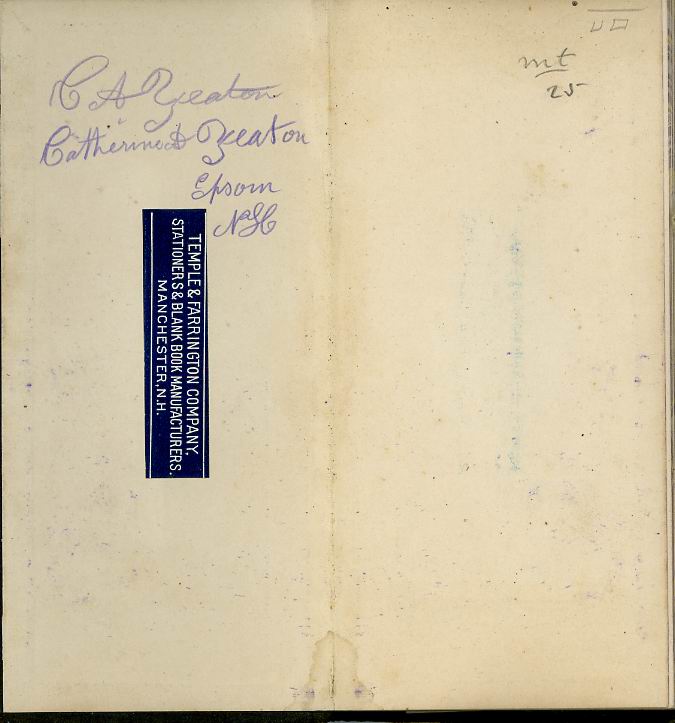 C A Yeaton
Catherine A Yeaton
Epsom
N H
TEMPLE & FARRINGTON COMPANY,
STATIONERS & BLANK BOOK MANUFACTURERS.
MANCHESTER, N.H.
mt
25